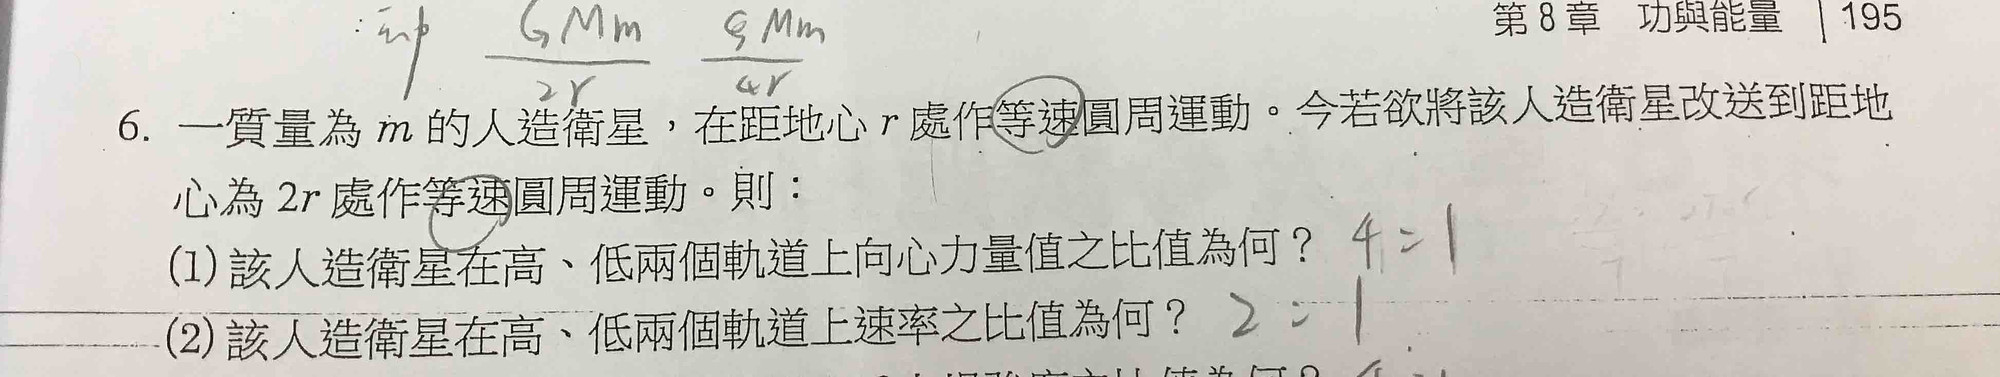 第8章 功與能量 | 195
GMm/2r GMm/4r
6. 一質量為 m 的人造衛星，在距地心 r 處作等速圓周運動。今若欲將該人造衛星改送到距地
心為 2r 處作等速圓周運動。則：
(1) 該人造衛星在高、低兩個軌道上向心力量值之比值為何？ 4:1
(2) 該人造衛星在高、低兩個軌道上速率之比值為何？ 2:1